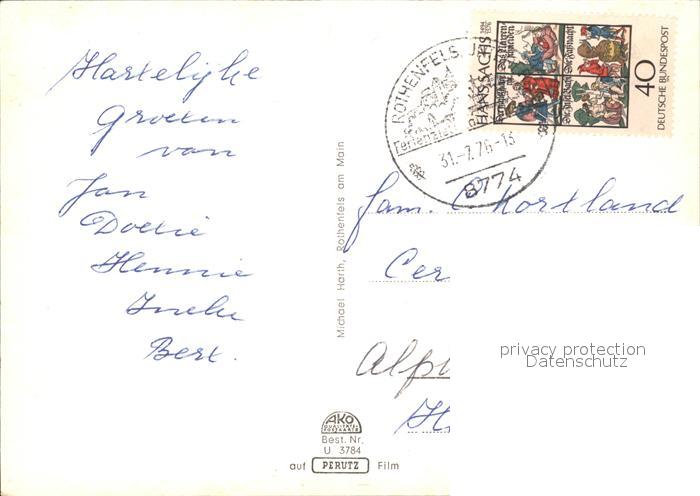 Hartelijke
Groeten
van
Jan
Doetie
Hennie
Ineke
Bert.
Michael Harth, Rothenfels am Main
AKO
QUALITÄTS
POSTKARTE
Best. Nr.
U 3784
auf PERUTZ Film
ROTHENFELS
Ferien
31.-7.76-13
8774
HANS SACHS
1494
1576
40
DEUTSCHE BUNDESPOST
fam. Mortland
Cer
Alp
H
privacy protection
Datenschutz